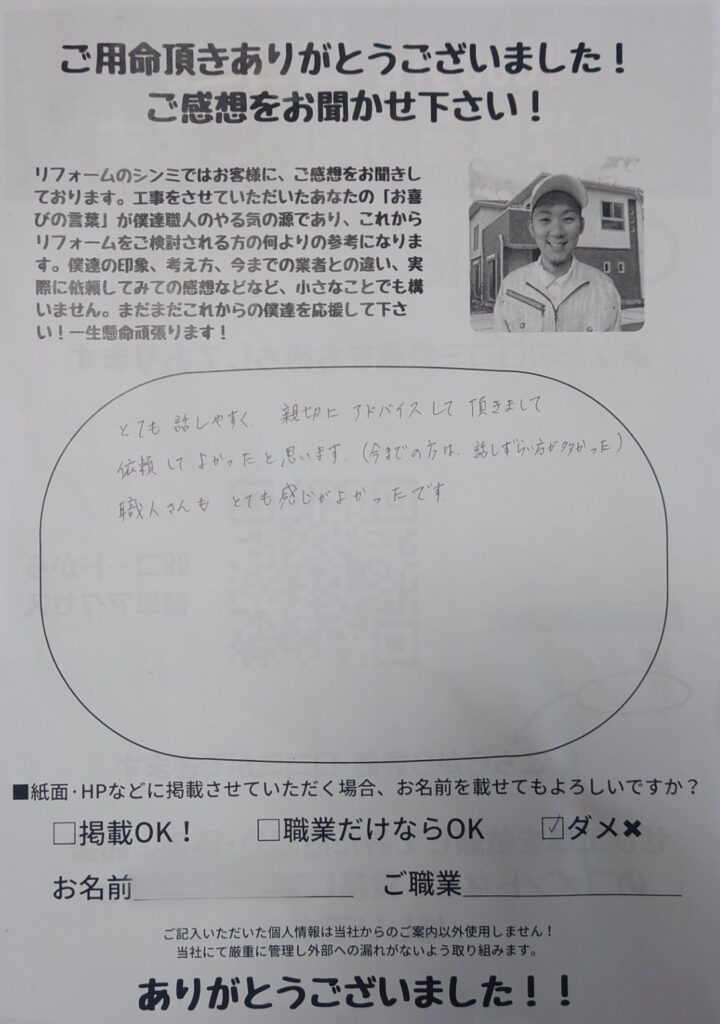 ご用命頂きありがとうございました！
ご感想をお聞かせ下さい！
リフォームのシンミではお客様に、ご感想をお聞きし
ております。工事をさせていただいたあなたの「お喜
びの言葉」が僕達職人のやる気の源であり、これから
リフォームをご検討される方の何よりの参考になりま
す。僕達の印象、考え方、今までの業者との違い、実
際に依頼してみての感想などなど、小さなことでも構
いません。まだまだこれからの僕達を応援して下さ
い！一生懸命頑張ります！
とても話しやすく、親切にアドバイスして頂きまして
依頼してよかったと思います。(今までの方は、話しずらい方が多かった)
職人さんもとても感じがよかったです。
■紙面･HPなどに掲載させていただく場合、お名前を載せてもよろしいですか？
□掲載OK！ □職業だけならOK ☑ダメ✖
お名前 ご職業
ご記入いただいた個人情報は当社からのご案内以外使用しません！
当社にて厳重に管理し外部への漏れがないよう取り組みます。
ありがとうございました！！